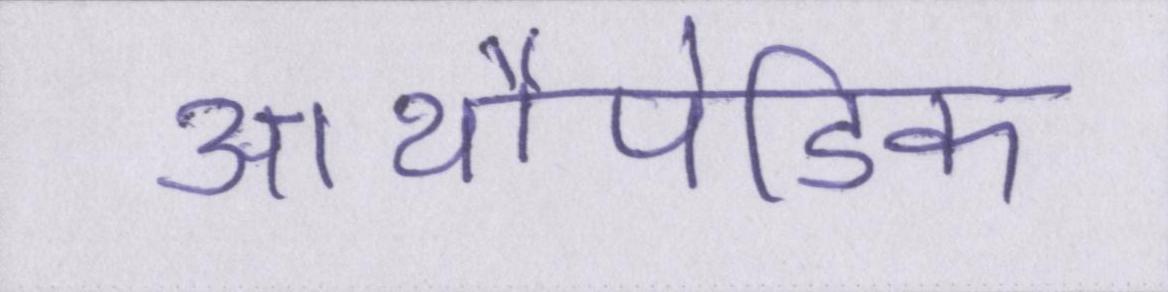 आथौपेडिक